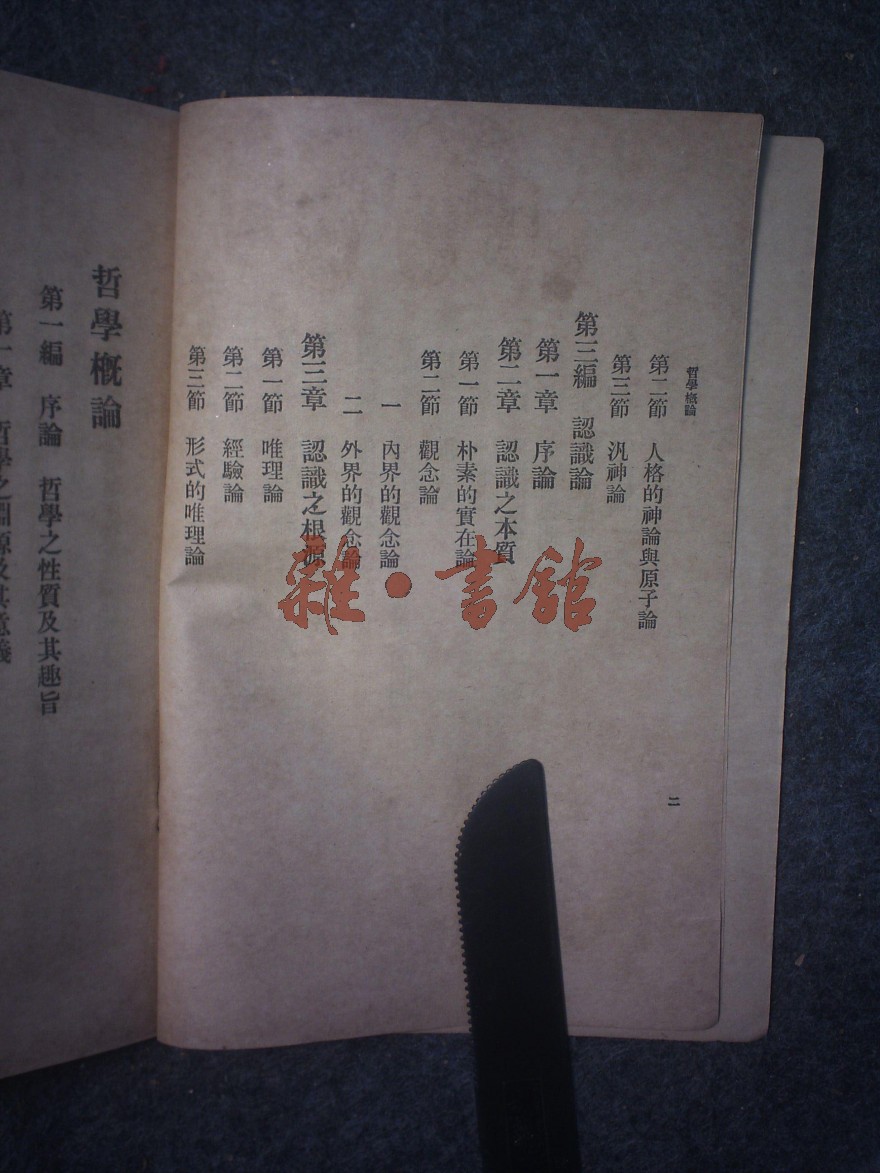 哲學概論
第二節 人格的神論與原子論
第三節 汎神論
第三編 認識論
第一章 序論
第二章 認識之本質
第一節 朴素的實在論
第二節 觀念論
一 內界的觀念論
二 外界的觀念論
第三章 認識之根源
第一節 唯理論
第二節 經驗論
第三節 形式的唯理論
二
哲學概論
第一編 序論 哲學之性質及其趣旨
第一章 哲學之淵源及其意義
雜·書館